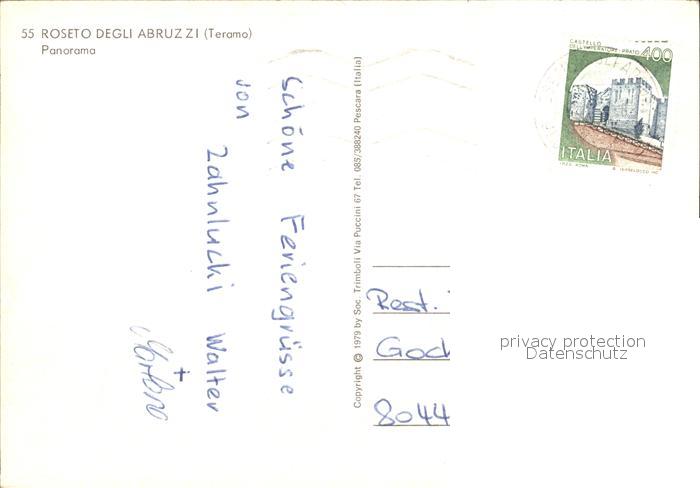 55 ROSETO DEGLI ABRUZZI (Teramo)
Panorama
Schöne Feriengrüsse
von
Zahnlucki Walter
+
Copyright © 1979 by Soc. Trimboli Via Puccini 67 Tel. 085/388240 Pescara (Italia)
CASTELLO
DELL'IMPERATORE · PRATO
400
ITALIA
Rest.
God
8044
privacy protection
Datenschutz